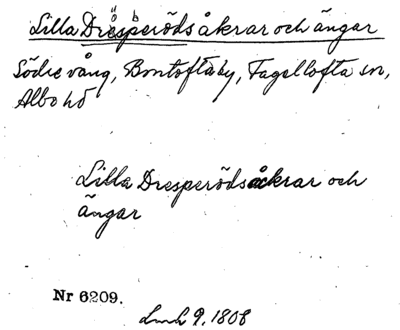 Lilla Dresperöds åkrar och ängar
Södre vång, Bontofta by, Fagellofta sn,
Albo hd
Lilla Dresperödsåckrar och
ängar
Nr 6209.
Lmh 9, 1808